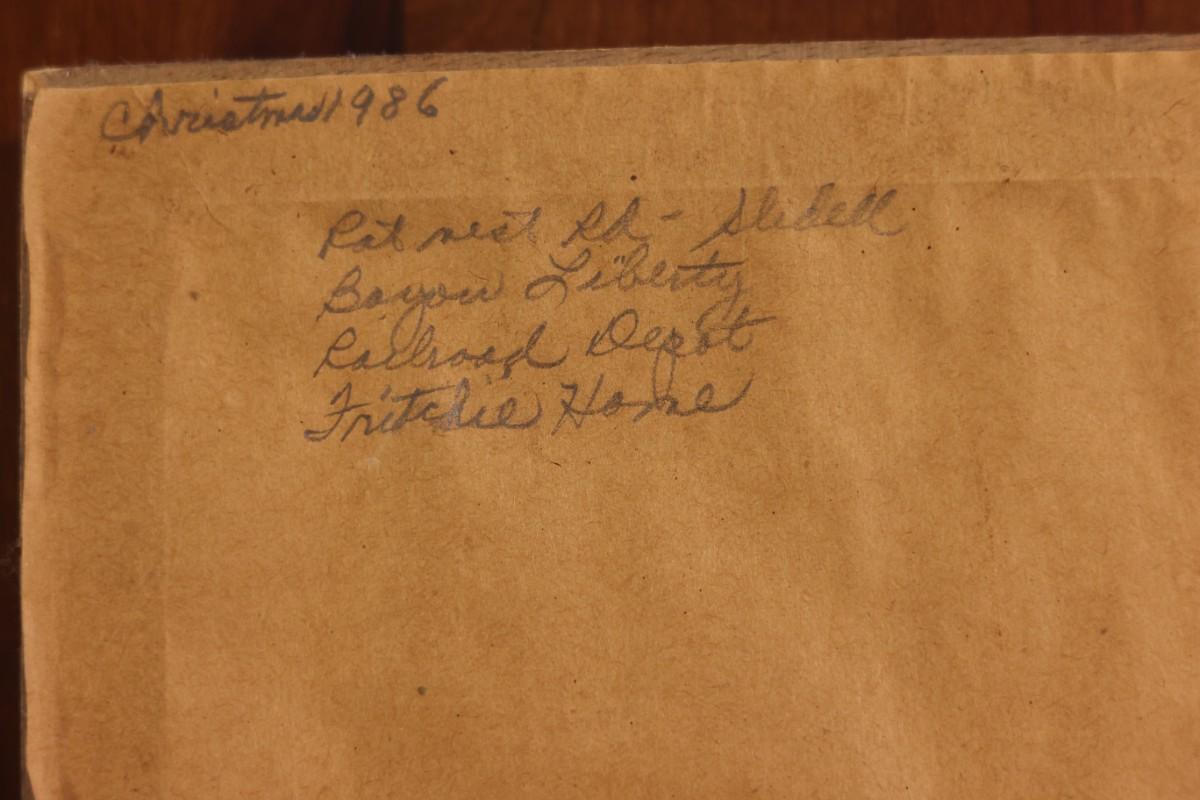 Christmas 1986
Rat nest Rd - Slidell
Bayou Liberty
Railroad Depot
Fritchie Home